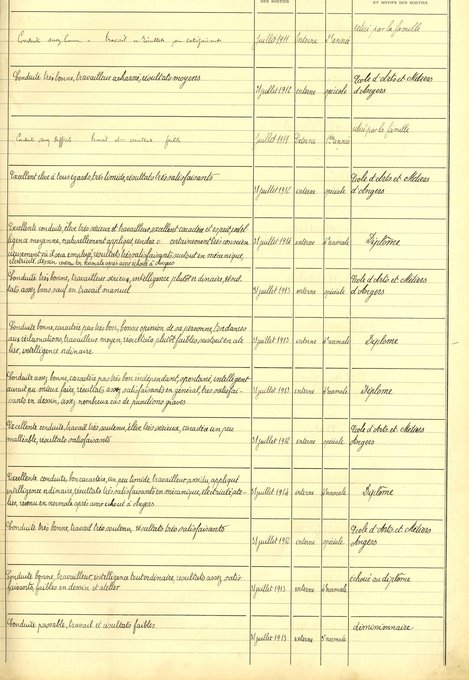 DES SORTIES
ET MOTIFS DES SORTIES
Conduite assez bonne - Travail et résultats peu satisfaisants
juillet 1911 interne 2e année
retiré par la famille
Conduite très bonne, travailleur acharné, résultats moyens
31 juillet 1912 interne spéciale
Ecole d'Arts et Métiers
d'Angers
Conduite assez difficile Travail et résultats faibles
juillet 1911 interne année
retiré par la famille
Excellent élève à tous égards, très timide, résultats très satisfaisants
31 juillet 1912 interne spéciale
Ecole d'Arts et Métiers
d'Angers
Excellente conduite, élève très sérieux et travailleur, excellent caractère et esprit, intel-
ligence moyenne, naturellement appliqué, rendra certainement très
résultats très satisfaisants, surtout en mécanique,
électricité, dessin, revenu en normale après avoir échoué à Angers
31 juillet 1914 interne normale
Diplôme
Conduite très bonne, travailleur sérieux, intelligence plutôt ordinaire, résul-
tats assez bons, sauf en travail manuel
31 juillet 1913 interne spéciale
Ecole d'Arts et Métiers
d'Angers
Conduite bonne, caractère pas très bon, bonne opinion de sa personne, tendances
aux réclamations, travailleur moyen, résultats plutôt faibles surtout en ate-
lier, intelligence ordinaire
31 juillet 1913 interne normale
Diplôme
Conduite assez bonne, caractère pas très bon, indépendant, spontané, intelligent
aurait pu mieux faire, résultats assez satisfaisants en général, très satisfai-
sants en dessin, assez nombreux cas de punitions graves
31 juillet 1913 interne normale
Diplôme
Excellente conduite, travail très soutenu, élève très sérieux, caractère un peu
malléable, résultats satisfaisants
31 juillet 1912 interne spéciale
Ecole d'Arts et Métiers
Angers
Excellente conduite, bon caractère, un peu timide, travailleur assidu, appliqué
intelligence ordinaire, résultats très satisfaisants en mécanique, électricité, ate-
lier, revenu en normale après avoir échoué à Angers
31 juillet 1914 interne normale
Diplôme
Conduite très bonne, travail très soutenu, résultats très satisfaisants
31 juillet 1912 interne spéciale
Ecole d'Arts et Métiers
Angers
Conduite bonne, travailleur, intelligence tout ordinaire, résultats assez satis-
faisants, faibles en dessin et atelier
31 juillet 1913 interne normale
échoué au diplôme
Conduite passable, travail et résultats faibles
31 juillet 1913 externe normale
démissionnaire